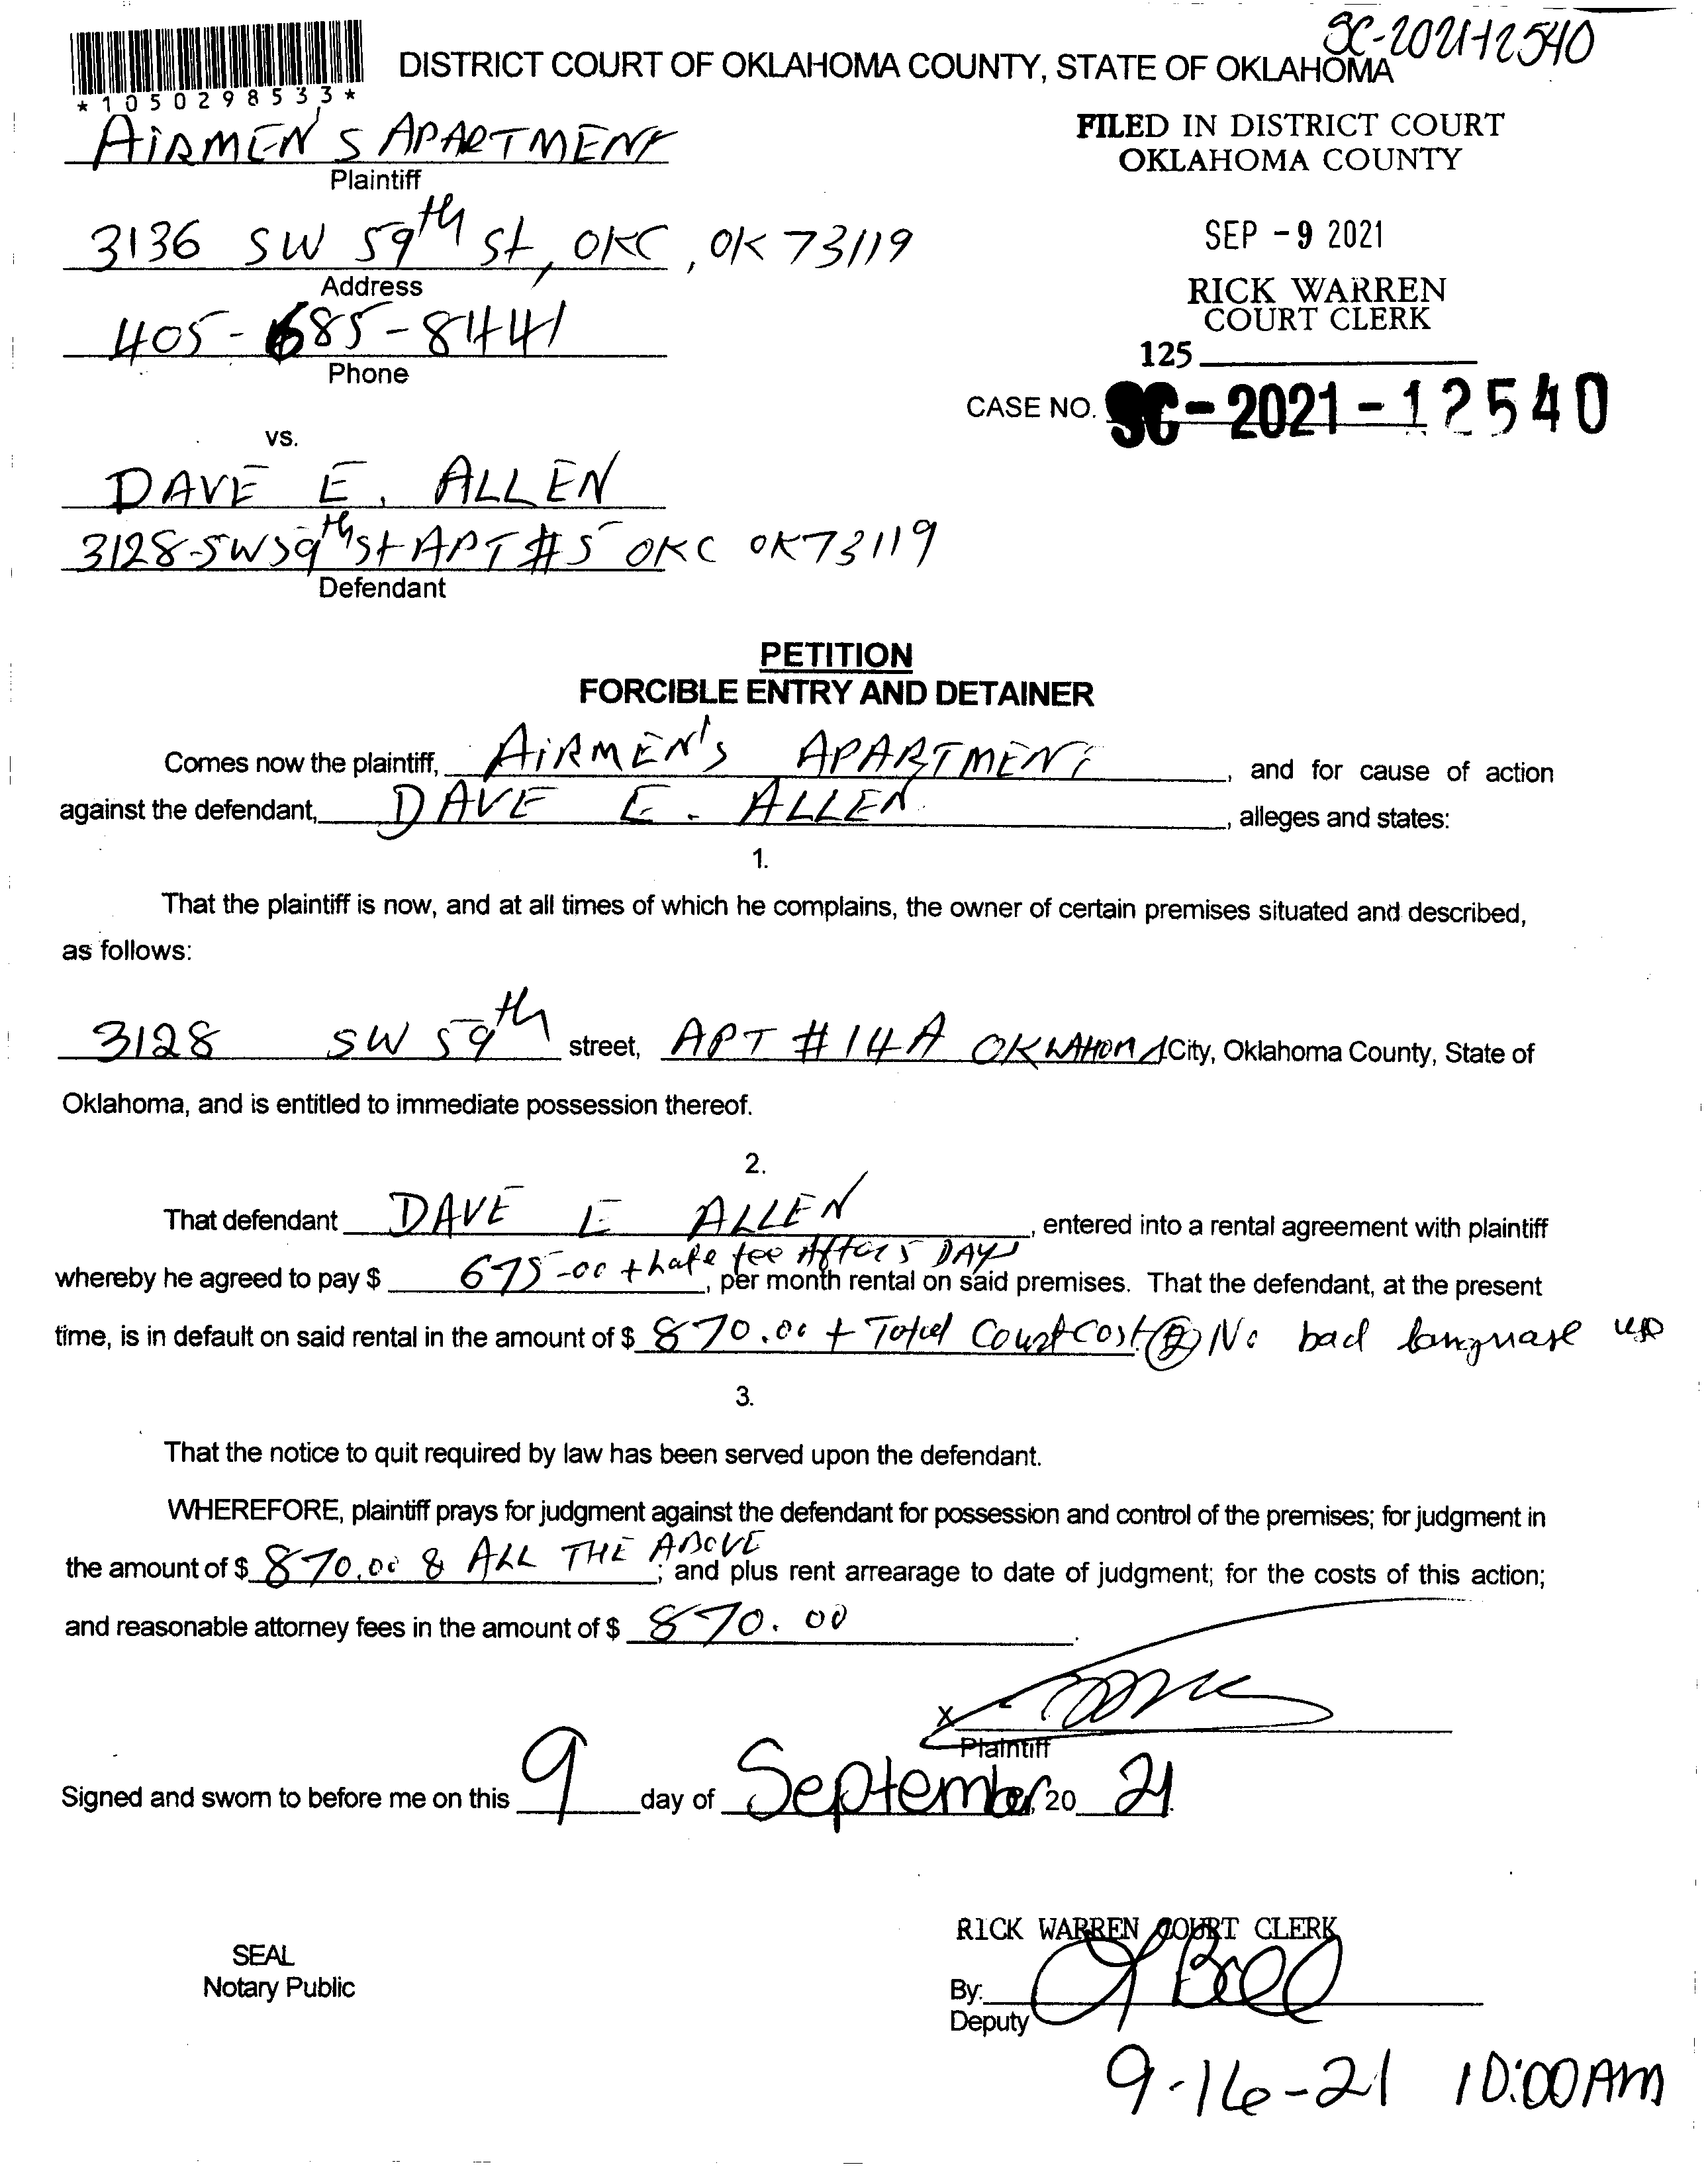 SC-2021-12540
DISTRICT COURT OF OKLAHOMA COUNTY, STATE OF OKLAHOMA
*1050298533*
AIRMEN'S APARTMENT
Plaintiff
FILED IN DISTRICT COURT
OKLAHOMA COUNTY
3136 SW 59th St, OKC, OK 73119
Address
SEP -9 2021
405-685-8441
Phone
RICK WARREN
COURT CLERK
125
CASE NO. SC-2021-12540
vs.
DAVE E. ALLEN
3128 SW 59th St APT #5 OKC OK 73119
Defendant
PETITION
FORCIBLE ENTRY AND DETAINER
Comes now the plaintiff, AIRMEN'S APARTMENT, and for cause of action
against the defendant, DAVE E. ALLEN, alleges and states:
1.
That the plaintiff is now, and at all times of which he complains, the owner of certain premises situated and described,
as follows:
3128 SW 59th street, APT #14A OKLAHOMA City, Oklahoma County, State of
Oklahoma, and is entitled to immediate possession thereof.
2.
That defendant DAVE E ALLEN, entered into a rental agreement with plaintiff
whereby he agreed to pay $ 675-00 + Late fee After 5 DAYS, per month rental on said premises. That the defendant, at the present
time, is in default on said rental in the amount of $ 870.00 + Total Court Cost. No bad
3.
That the notice to quit required by law has been served upon the defendant.
WHEREFORE, plaintiff prays for judgment against the defendant for possession and control of the premises; for judgment in
the amount of $ 870.00 & ALL THE ABOVE; and plus rent arrearage to date of judgment; for the costs of this action;
and reasonable attorney fees in the amount of $ 870.00.
X
Plaintiff
Signed and sworn to before me on this 9 day of September, 20 21.
RICK WARREN COURT CLERK
SEAL
Notary Public
By:
Deputy
9-16-21 10:00AM